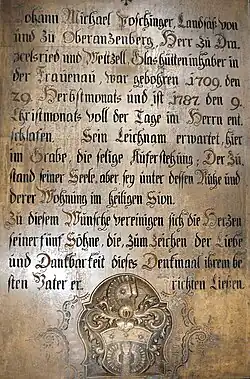 Johann Michael Poschinger, Landsaß von
und zu Oberanzenberg, Herr zu Dra-
xelsried und Wettzell, Glashütteninhaber in
der Frauenau, war gebohren 1709. den
29. Herbstmonats und ist 1787. den 9.
Christmonats voll der Tage im Herrn ent
schlafen. Sein Leichnam erwartet, hier
im Grabe, die selige Auferstehung; Der Zu
stand seiner Seele, aber sey unter dessen Ruhe und
derer Wohnung im heiligen Sion.
Zu diesem Wunsche vereinigen sich die Herzen
seiner fünf Söhne, die, zum Zeichen der Liebe
und Dankbarkeit dieses Denkmaal ihrem be
sten Vater er. richten ließen.